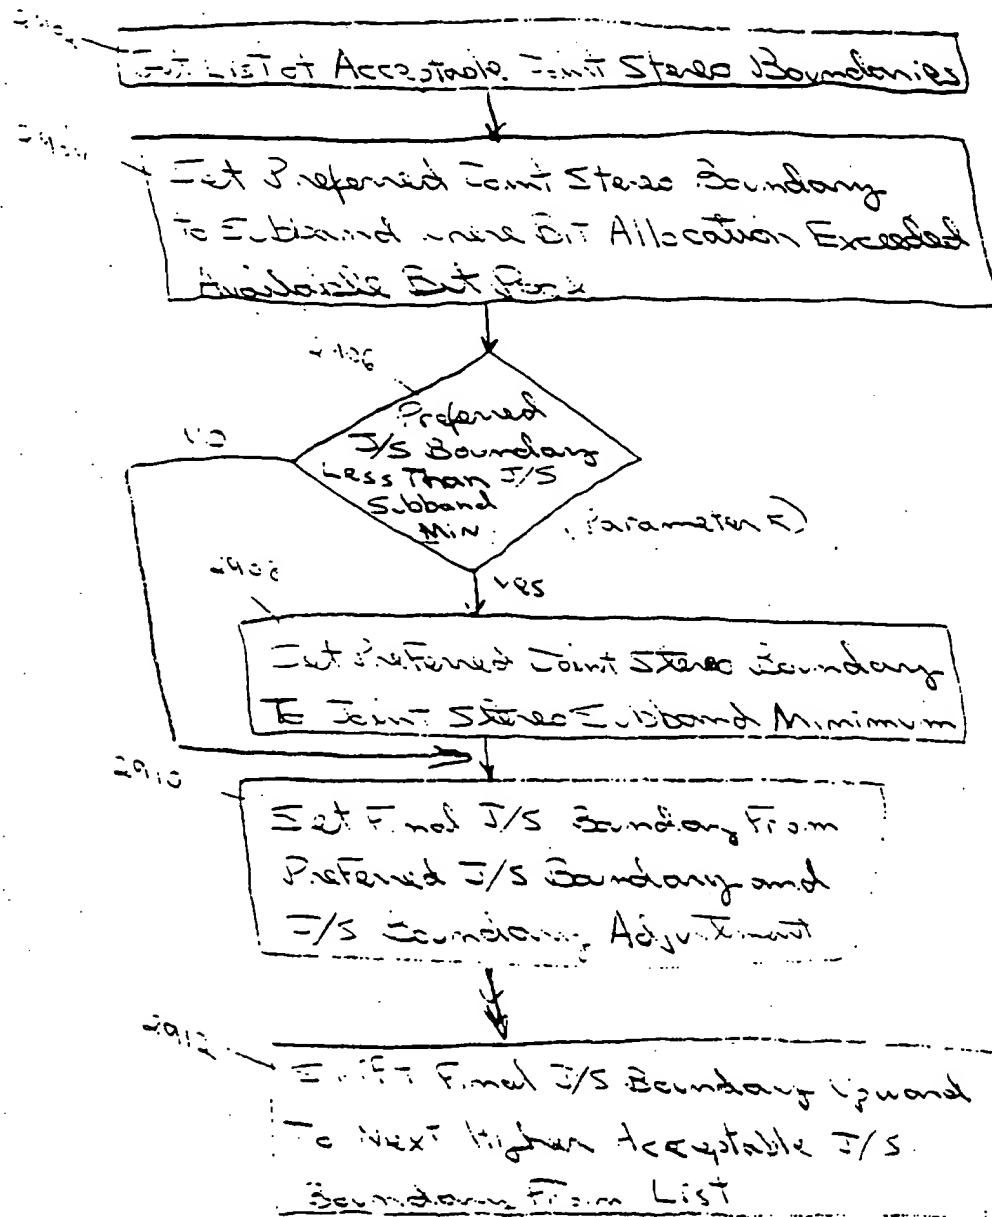 List of Acceptable Joint Stereo Boundaries
Set Preferred Joint Stereo Boundary
To Subband where Bit Allocation Exceeded
Available Bit Pool
2906
Preferred
J/S Boundary
Less Than J/S
Subband
Min
NO
(Parameter K)
2908
yes
Set Preferred Joint Stereo Boundary
To Joint Stereo Subband Minimum
2910
Set Final J/S Boundary From
Preferred J/S Boundary and
J/S Boundary Adjustment
2912
Shift Final J/S Boundary Upward
To Next Higher Acceptable J/S
Boundary From List